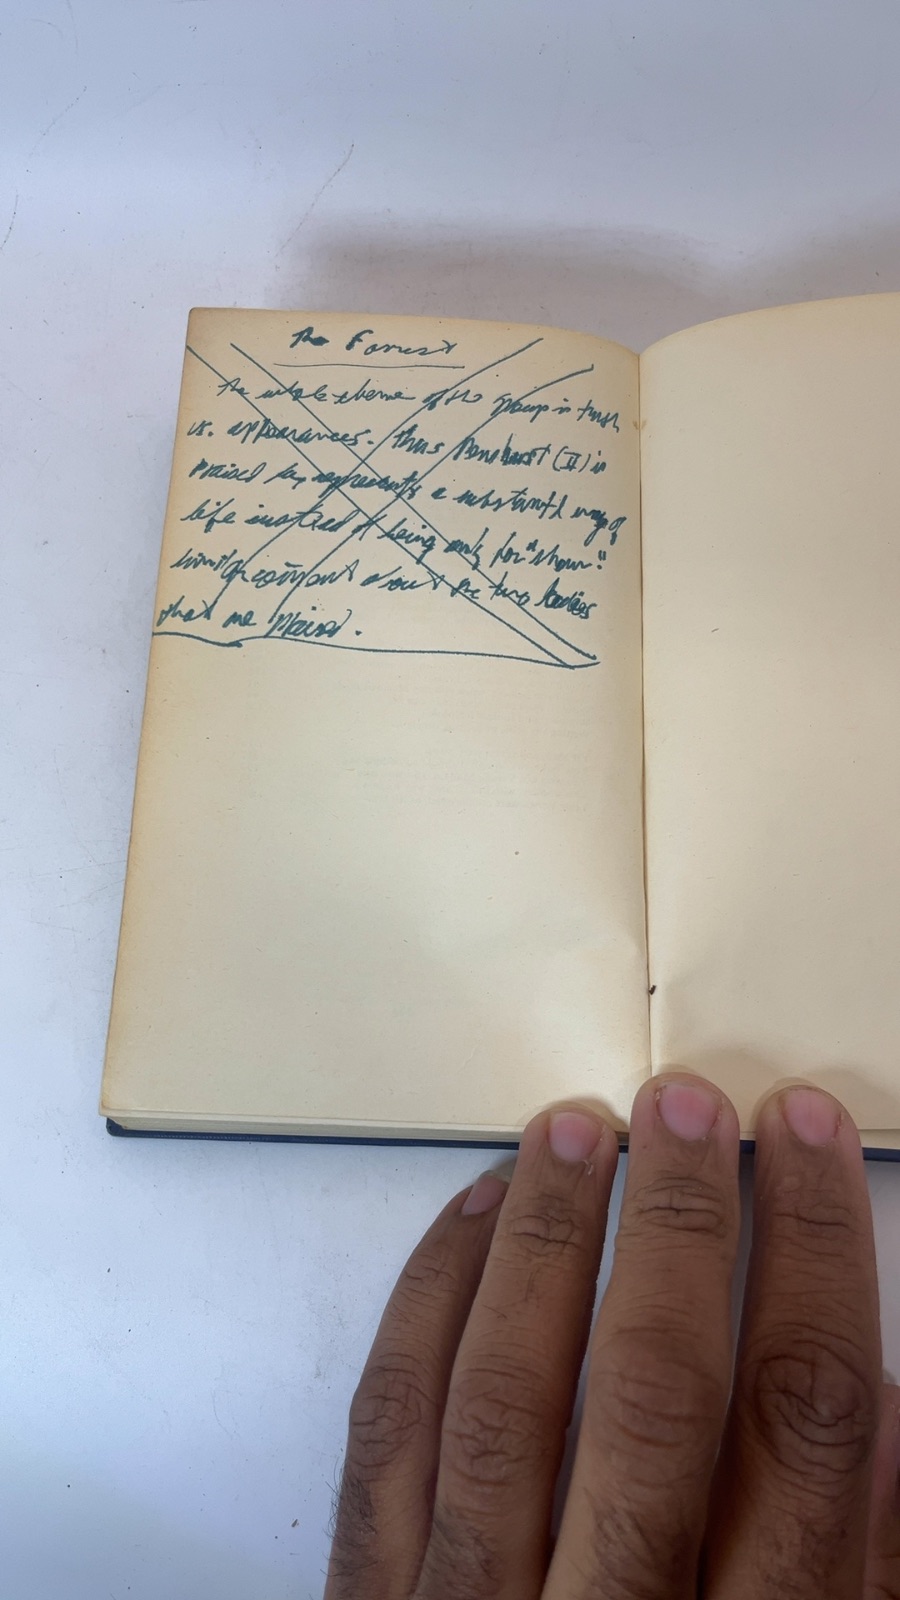 The Forrest
The whole theme of the group is truth
vs. appearances. Thus Penshurst (II) is
praised for represents a substantial way of
life instead of being only for "show."
comment about the two ladies
that are praised.